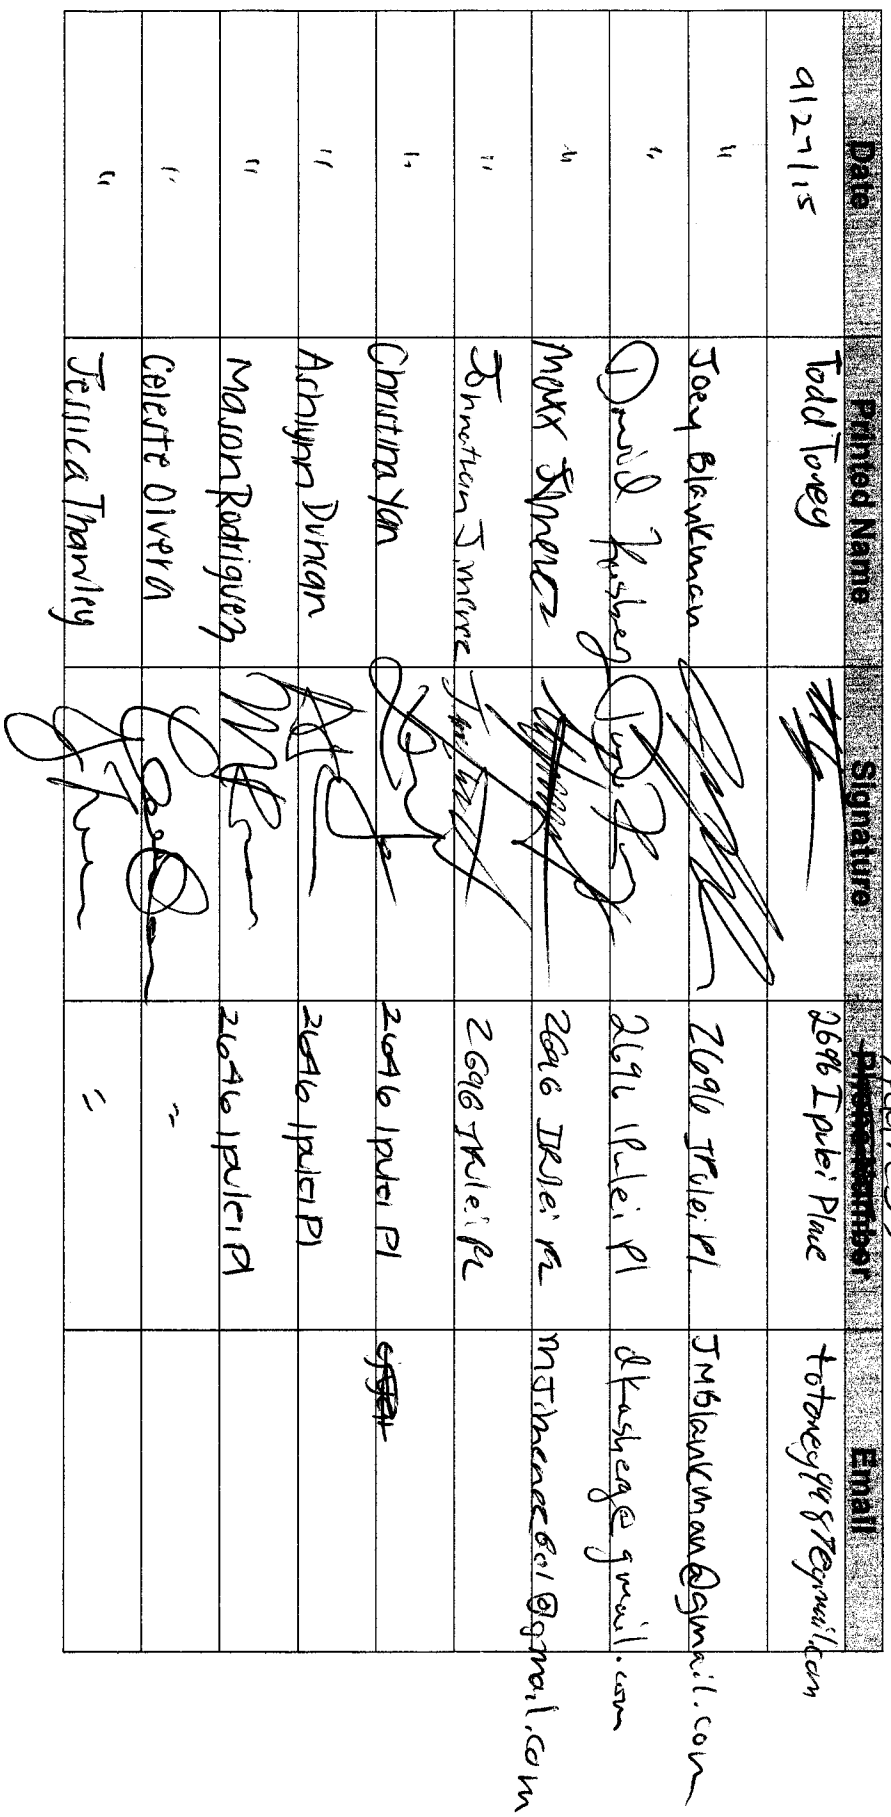 Address
Date Printed Name Signature Phone Number Email
9/27/15 Todd Toney 2696 Ipulei Place
" Joey Blankman 2696 IPulei Pl. JMBlankman@gmail.com
" David Kasberg 2696 IPulei Pl dkasberg@gmail.com
" Maxx Jimenez 2696 IPulei Pl
" Johnathan Jimenez 2696 IPulei Pl
" Christina Yan 2696 Ipulei Pl
" Ashlynn Duncan 2696 Ipulei Pl
" Mason Rodriguez 2696 Ipulei Pl
" Celeste Olvera "
" Jessica Thawley "